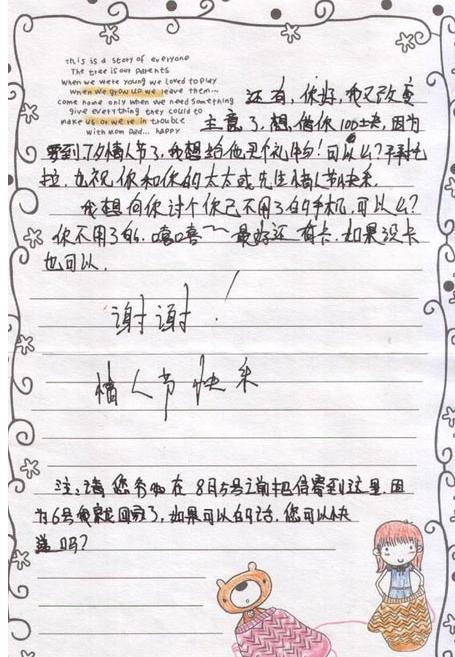 this is a story of everyone
The tree is our parents
when we were young we loved to play
when we grow up we leave them...
come home only when we need something
give everything they could to
make us or we're in trouble
with mom dad... happy
还有，你好，我又改变
主意了，想借你100块，因为
要到7夕情人节了，我想给他买个礼物！可以么？拜托
拉，也祝你和你的太太或先生情人节快乐.
我想向你讨个你已不用了的手机，可以么？
你不用了的，嘻嘻~~最好还有卡，如果没卡
也可以.
谢谢！
情人节快乐
注：请您务必在8月5号之前把信寄到这里，因
为6号我就回家了，如果可以的话，您可以快
递吗？